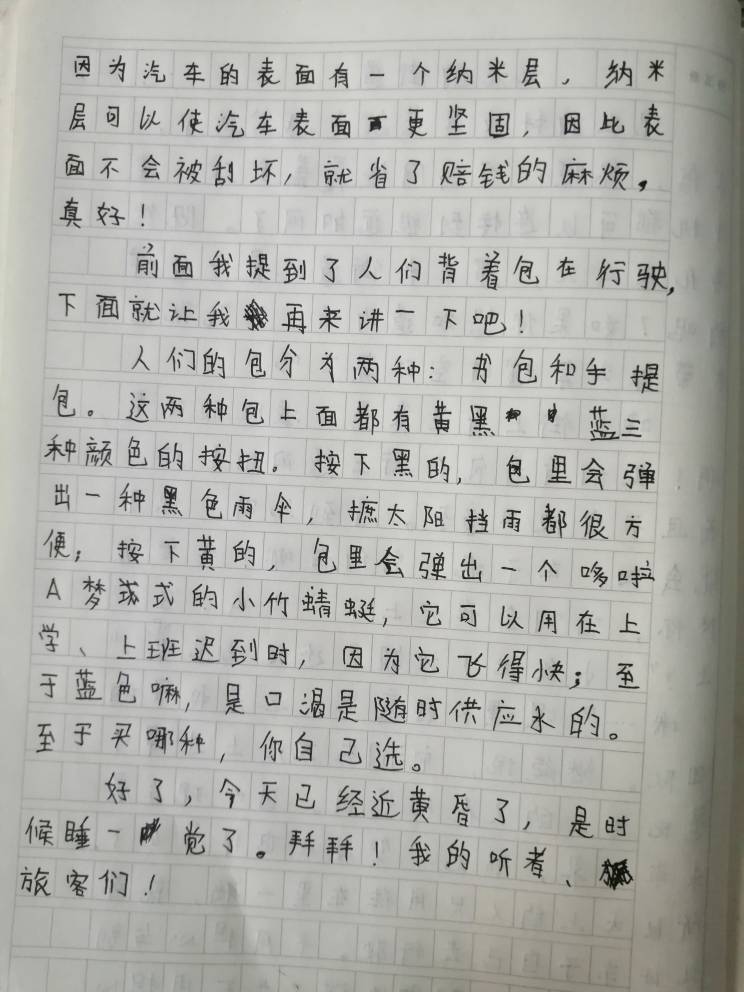 因为汽车的表面有一个纳米层，纳米
层可以使汽车表面更坚固，因此表
面不会被刮坏，就省了赔钱的麻烦，
真好！
前面我提到了人们背着包在行驶，
下面就让我再来讲一下吧！
人们的包分为两种：书包和手提
包。这两种包上面都有黄黑蓝三
种颜色的按扭。按下黑的，包里会弹
出一种黑色雨伞，摭太阳挡雨都很方
便；按下黄的，包里会弹出一个哆啦
A梦式的小竹蜻蜓，它可以用在上
学、上班迟到时，因为它飞得快；至
于蓝色嘛，是口渴是随时供应水的。
至于买哪种，你自己选。
好了，今天已经近黄昏了，是时
候睡一觉了。拜拜！我的听者、
旅客们！